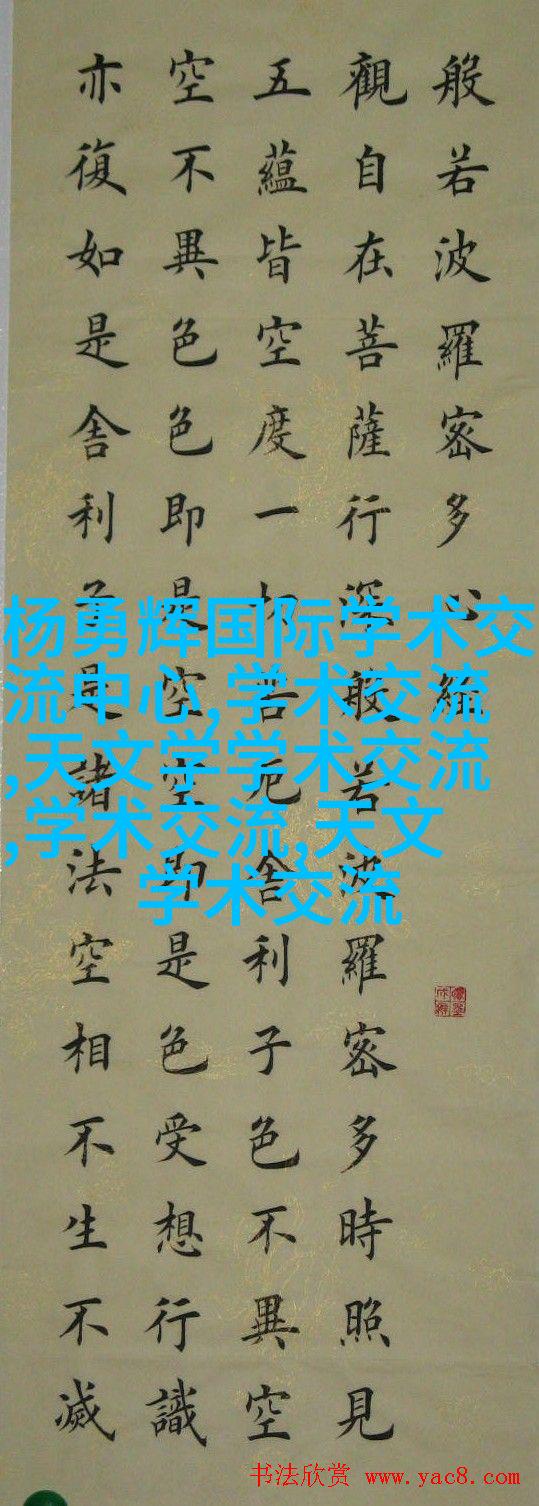 般若波羅密多心經
觀自在菩薩行深般若波羅密多時照見
五蘊皆空度一切苦厄舍利子色不異空
空不異色色即是空空即是色受想行識
亦復如是舍利子是諸法空相不生不滅
杨勇辉国际学术交
流中心,学术交流
,天文学学术交流
,学术交流,天文
学术交流
书法欣赏 www.yac8.com